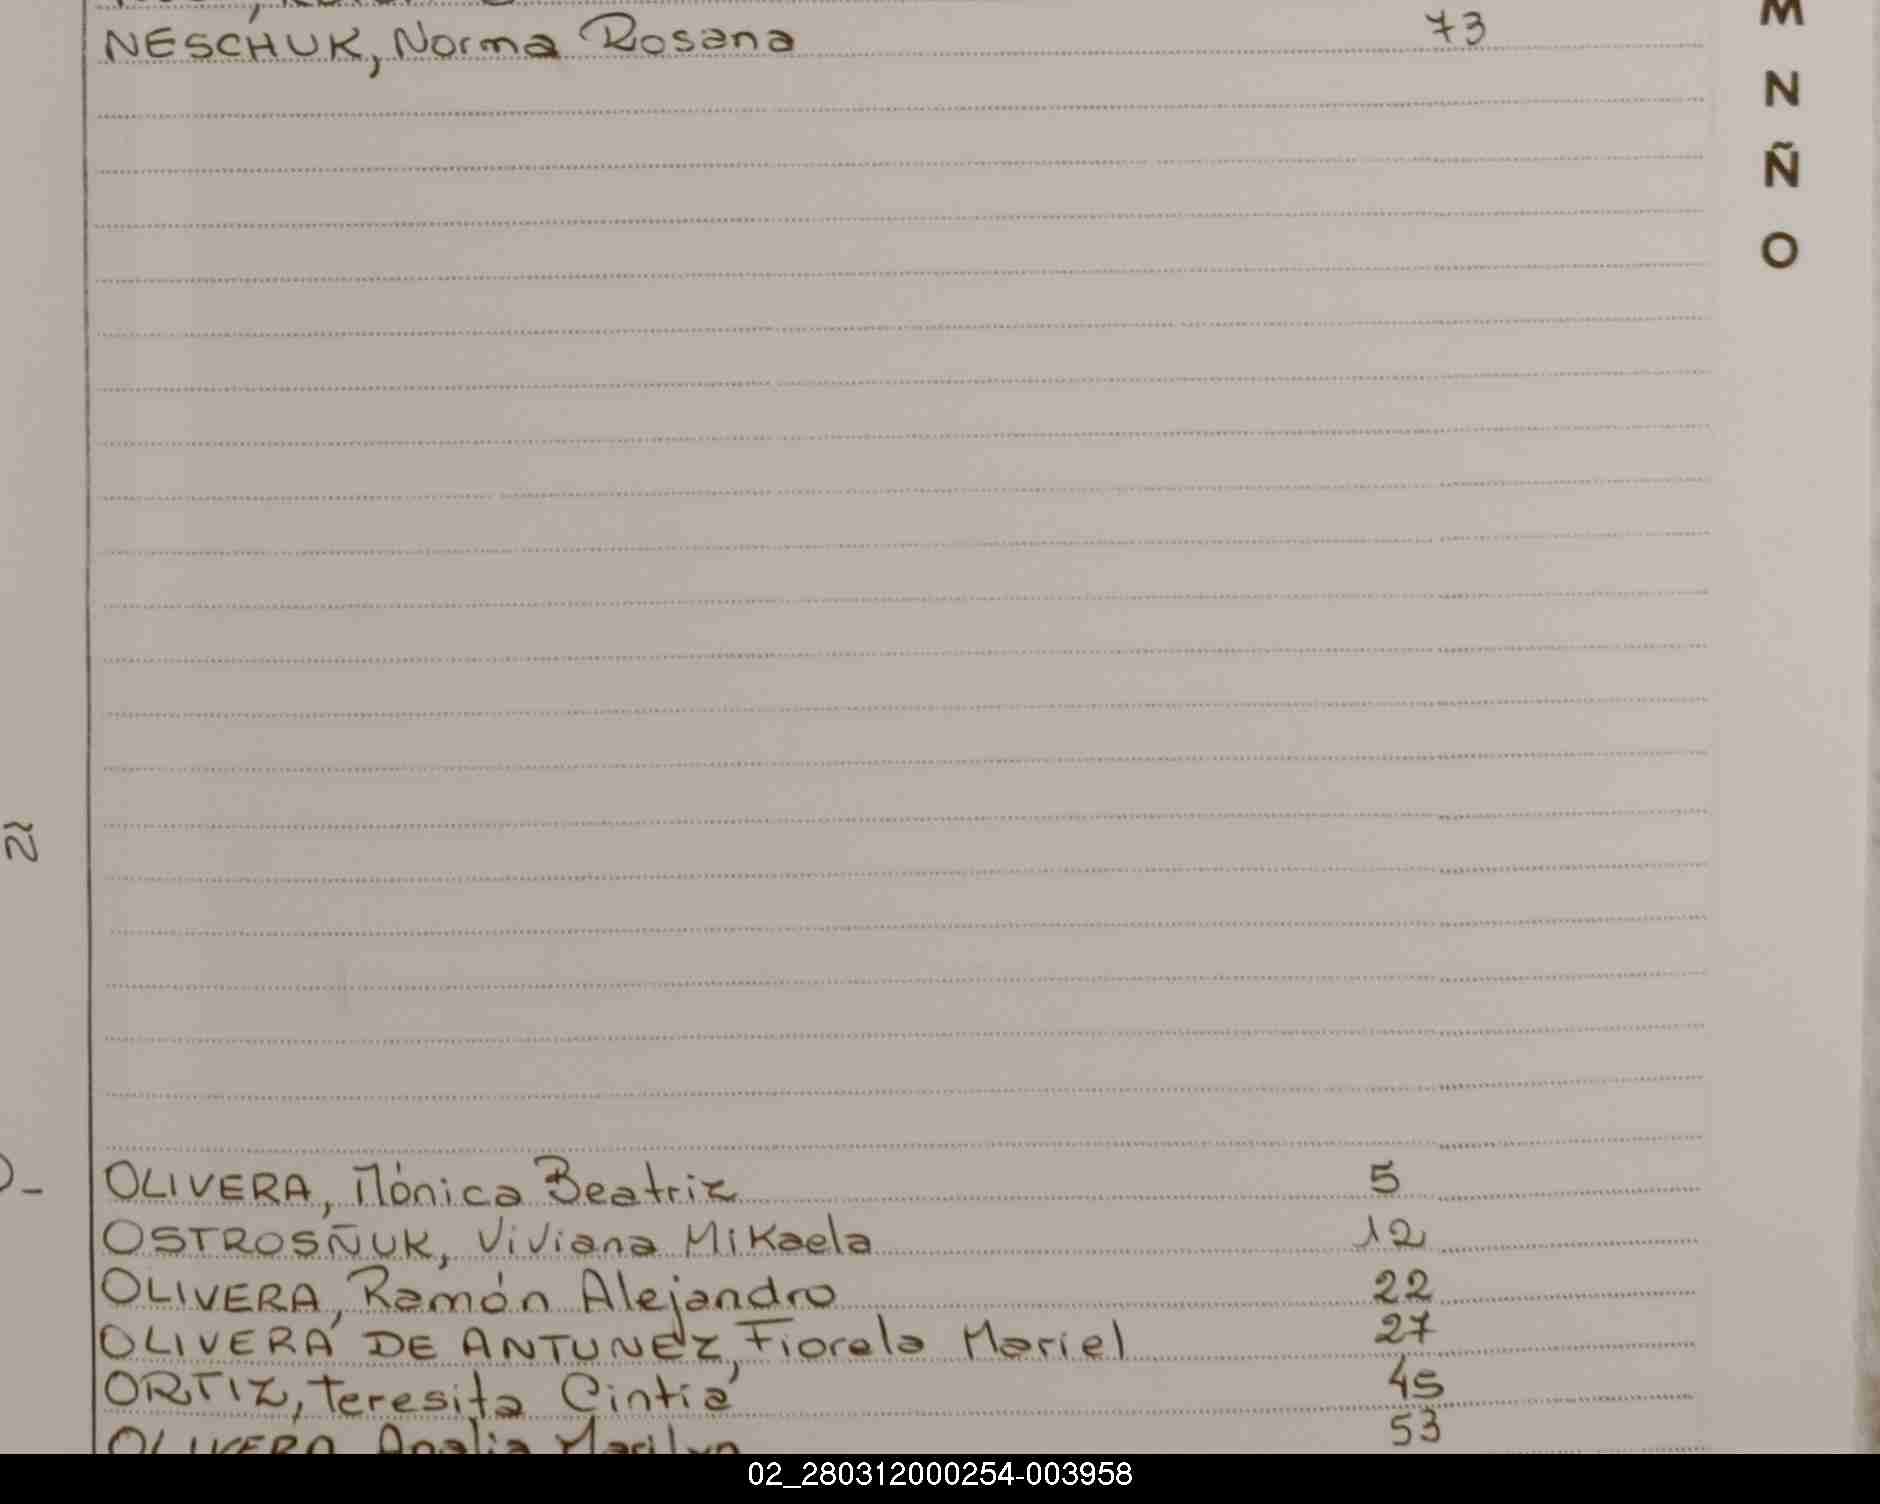 NESCHUK, Norma Rosana 73
M
N
Ñ
O
Ñ
O- OLIVERA, Mónica Beatriz 5
OSTROSÑUK, Viviana Mikaela 12
OLIVERA, Ramón Alejandro 22
OLIVERA DE ANTUNEZ, Fiorela Mariel 27
ORTIZ, Teresita Cintia 45
OLIVERA Analia Marilyn 53
02_280312000254-003958